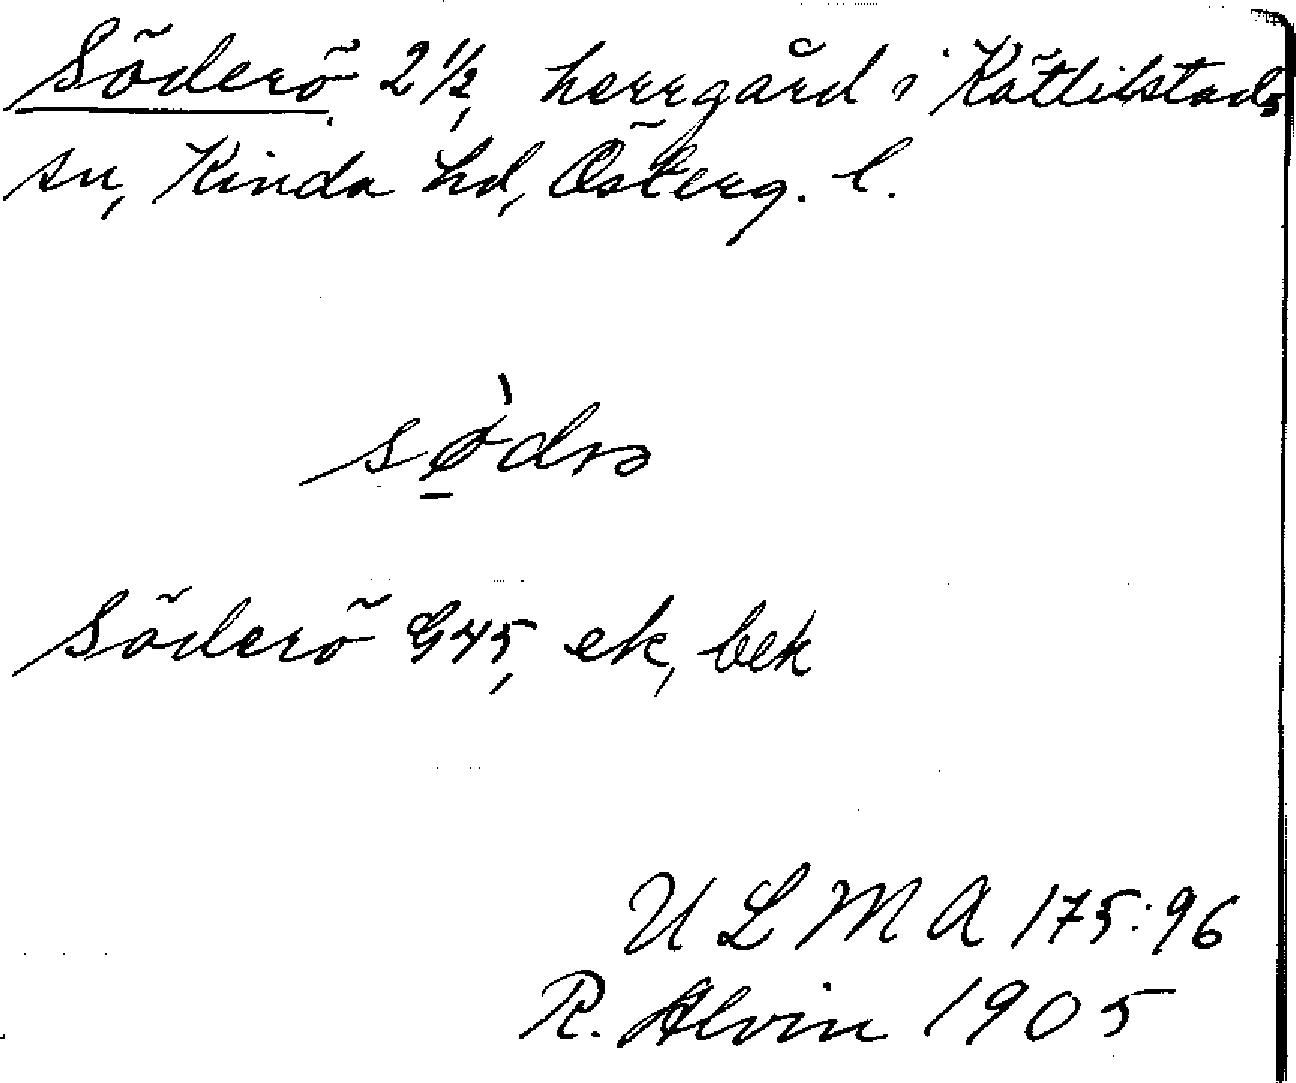 Söderö 2 1/2, herrgård i Kättilstads
sn, Kinda hd, Österg. l.
Söderö G45, ek, bek
U L M A 175:96
R. Alvin 1905